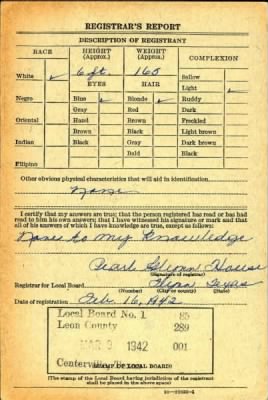 REGISTRAR'S REPORT
DESCRIPTION OF REGISTRANT
RACE HEIGHT (Approx.) WEIGHT (Approx.) COMPLEXION
White ✓ 6 ft. 160 Sallow
EYES HAIR Light ✓
Negro Blue ✓ Blonde ✓ Ruddy
Gray Red Dark
Oriental Hazel Brown Freckled
Brown Black Light brown
Indian Black Gray Dark brown
Bald Black
Filipino
Other obvious physical characteristics that will aid in identification
None
I certify that my answers are true; that the person registered has read or has had
read to him his own answers; that I have witnessed his signature or mark and that
all of his answers of which I have knowledge are true, except as follows:
None to my Knowledge
Pearl Glenn House
(Signature of registrar)
Registrar for Local Board Texas
(Number) (City or county) (State)
Date of registration Feb. 16, 1942
Local Board No. 1 85
Leon County 289
MAR 9 1942 001
Centerville, Texas
(STAMP OF LOCAL BOARD)
(The stamp of the Local Board having jurisdiction of the registrant
shall be placed in the above space)